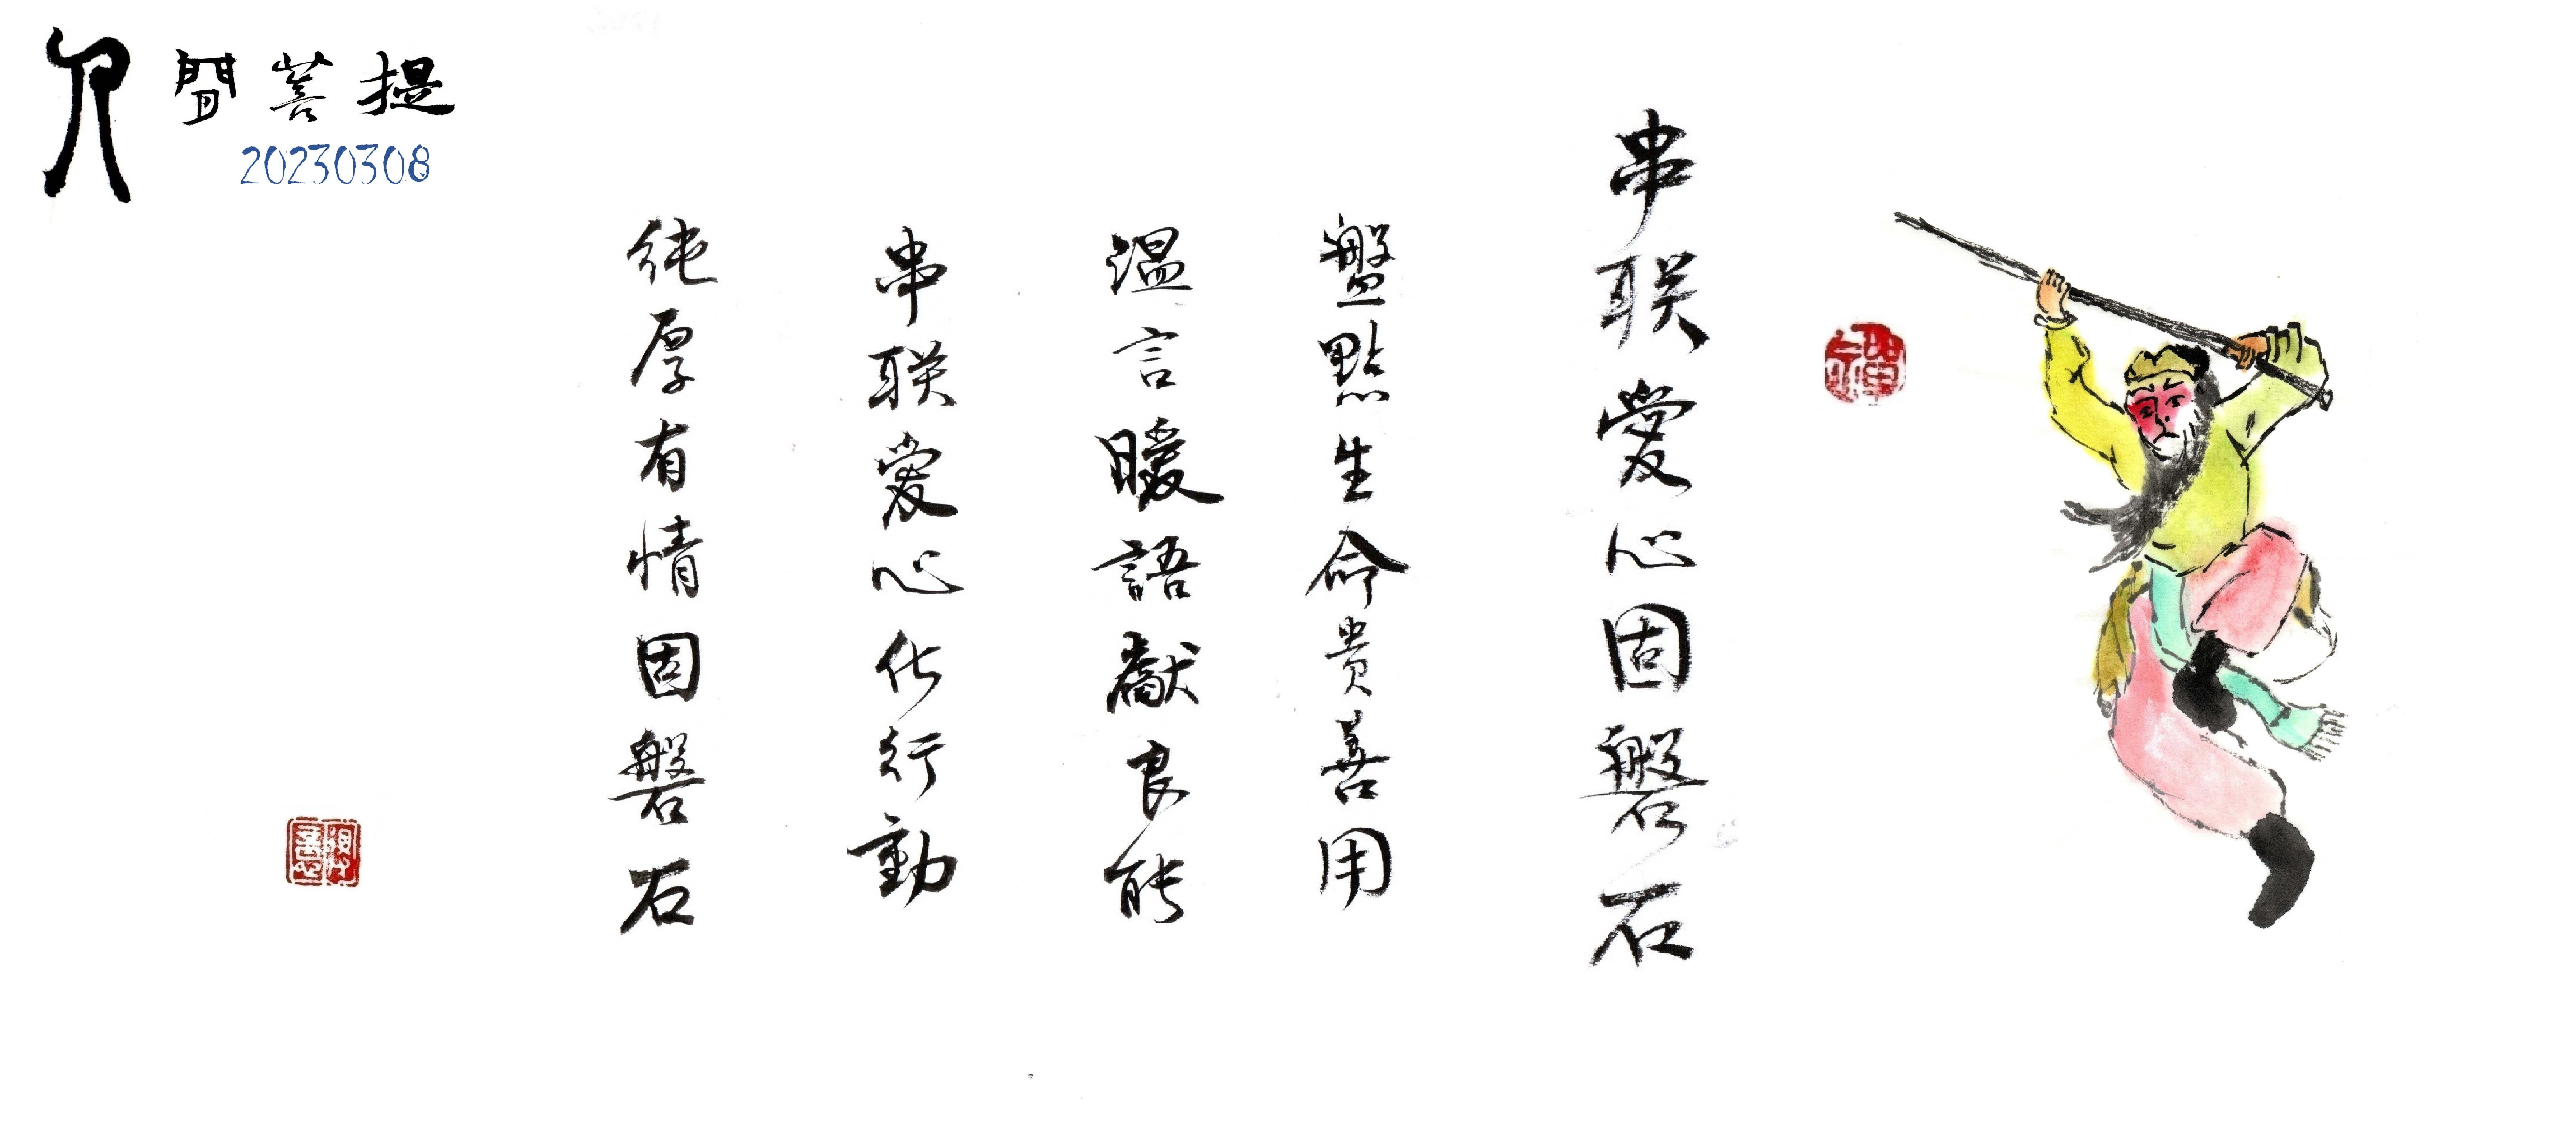 人間菩提
20230308
串联愛心固磐石
盤點生命貴善用
溫言暖語獻良能
串联愛心化行動
純厚有情固磐石